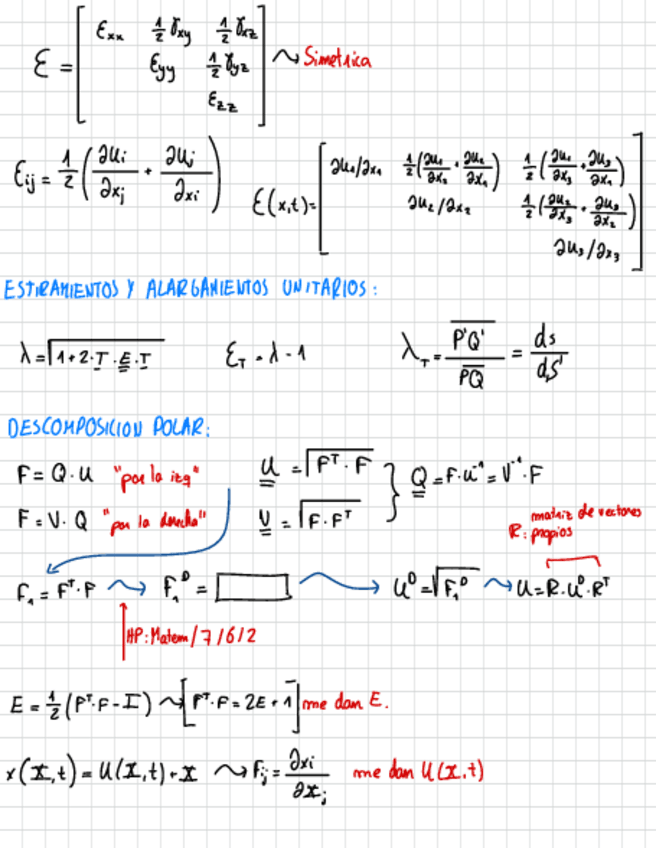 ε = [ εxx ½γxy ½γxz
εyy ½γyz ~ Simetrica
εzz ]
εij = ½ ( ∂ui/∂xj + ∂uj/∂xi )
ε(x,t) = [ ∂u1/∂x1 ½(∂u1/∂x2 + ∂u2/∂x1) ½(∂u1/∂x3 + ∂u3/∂x1)
∂u2/∂x2 ½(∂u2/∂x3 + ∂u3/∂x2)
∂u3/∂x3 ]
ESTIRAMIENTOS Y ALARGAMIENTOS UNITARIOS:
λ = √(1+2·T·E·T) εT = λ - 1 λT = P'Q'/PQ = ds/dS'
DESCOMPOSICION POLAR:
F = Q·U "por la izq" U = √(Fᵀ·F) } Q = F·U⁻¹ = V⁻¹·F
F = V·Q "por la derecha" V = √(F·Fᵀ)
R: matriz de vectores propios
F1 = Fᵀ·F F1ᴰ = Uᴰ = √F1ᴰ U = R·Uᴰ·Rᵀ
HP: Matem/7/6/2
E = ½(Fᵀ·F - I) ~ [Fᵀ·F = 2E + 1] me dan E.
x(X,t) = U(X,t) + X ~ Fij = ∂xi/∂Xj me dan U(X,t)